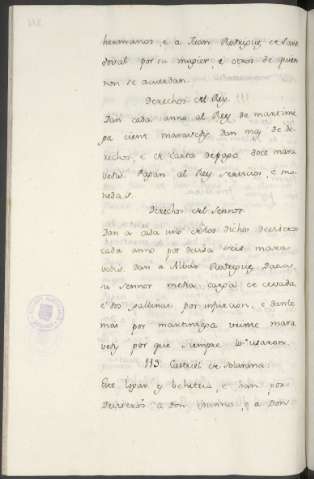 hermanos, e a Juan Rodriguez de Sando
doval por su muger, e otros de quien
non se acuerdan.
Derechos del Rey.
Dan cada anno al Rey de martinie
ga cient maravedis, dan mas de de
rechos, e de carta depaga doce mara
vedis. Pagan al Rey servicios, e mo
nedas.
Derechos del Sennor.
Dan a cada uno de los dichos deviseros
cada anno por devisa seis mara
vedis. Dan a
Rodriguez
su Sennor media carga de cevada,
e dos gallinas por infurcion, e danle
mas por martiniega veinte mara
vedis por que siempre lo usaron.
113. Castriel de
Este logar es behetria, e han por
deviseros a Don
e a Don